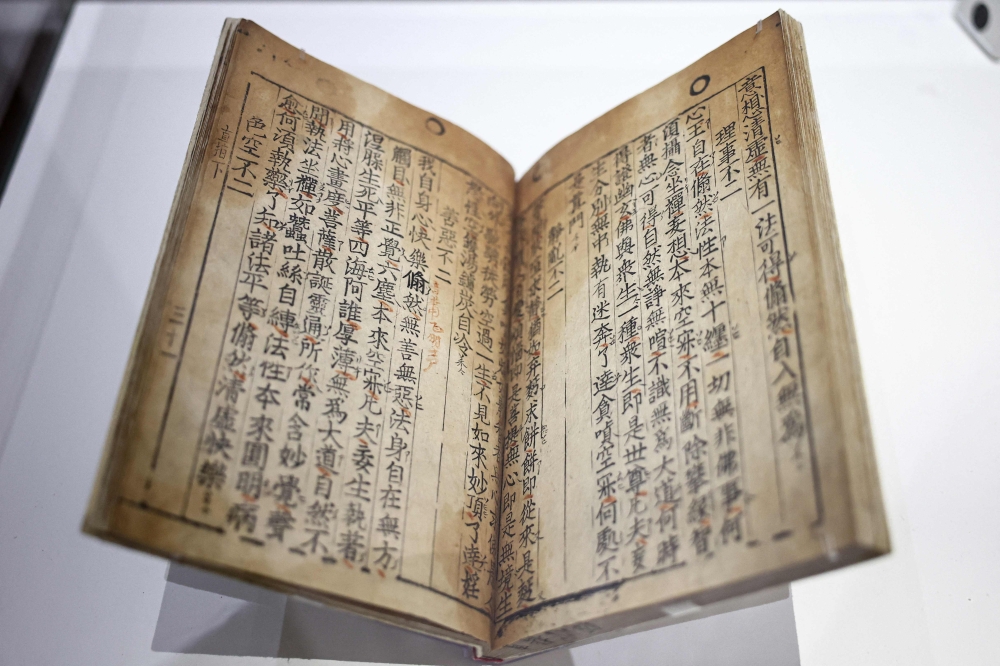 意想清虛無有一法可得翛然自入無爲
理事不二
心王自在翛然法性本無十纏一切無非佛事何
須攝念坐禪妄想本來空寂不用斷除攀緣智
者無心可得自然無諍無喧不識無爲大道何時
得證幽玄佛與衆生一種衆生即是世尊凡夫妄
生分別無中執有迷奔了達貪嗔空寂何處不
是眞門
靜亂不二
求靜猶如弃麪求餅餅即從來是麪
即是菩提無心即是無境生
徒勞空過一生不見如來妙頂了達婬
慾性空鑊湯爐炭自冷
善惡不二
我自身心快樂翛然無善無惡法身自在無方
觸目無非正覺六塵本來空寂凡夫妄生執著
涅槃生死平等四海阿誰厚薄無爲大道自然不
用將心畫度菩薩散誕靈通所作常含妙覺聲
聞執法坐禪如蠶吐絲自縛法性本來圓明病
愈何須執藥了知諸法平等翛然清虛快樂
色空不二
直指下